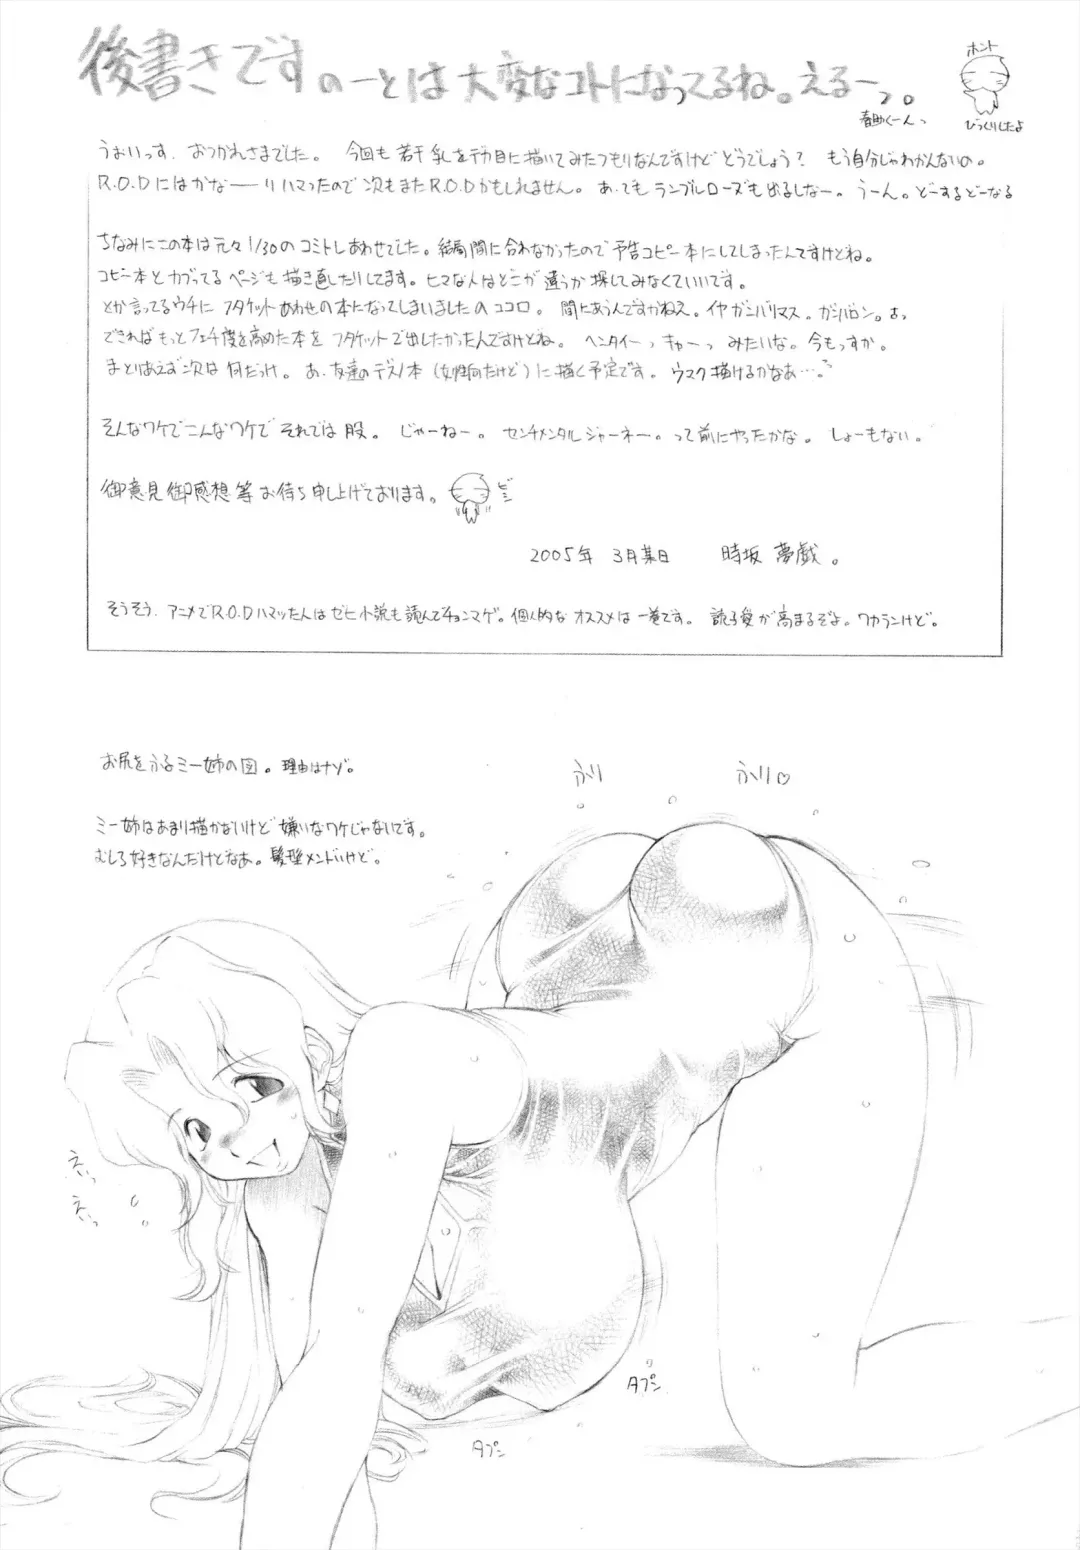 後書きです のーとは大変なコトになってるね。えるーっ。
ホント
びっくりしたよ
うぉいっす、おつかれさまでした。 今回も若干乳をデカ目に描いてみたつもりなんですけどどうでしょう? もう自分じゃわかんないの。
R.O.Dにはかなーーりハマったので次もまたR.O.Dかもしれません。あ、でもランブルローズも出るしなー。うーん。どーするどーなる
ちなみにこの本は元々1/30のコミトレあわせでした。結局間に合わなかったので予告コピー本にしてしまったんですけどね。
コピー本とカブってるページも描き直したりしてます。ヒマな人はどこが違うか探してみなくていいです。
とか言ってるウチにフタケットあわせの本になってしまいましたのココロ。間にあうんですかねえ。イヤガンバリマス。ガンバロン。よっ
できればもっとフェチ度を高めた本をフタケットで出したかったんですけどね。ヘンタイーっ キャーっ みたいな。今もっすか。
まとりあえず次は何だっけ。あ、友達のデスノ本(女性向だけど)に描く予定です。ウマク描けるかなあ…。
そんなワケでこんなワケでそれでは股。じゃーねー。センチメンタルジャーネー。って前にやったかな。しょーもない。
御意見御感想等お待ち申し上げております。
2005年 3月某日 時坂 夢戯。
そうそう、アニメでR.O.Dハマッた人はゼヒ小説も読んでチョンマゲ。個人的なオススメは一巻です。読子愛が高まるぞよ。ワカランけど。
お尻をふるミー姉の図。理由はナゾ。
ふり ふり♡
ミー姉はあまり描かないけど嫌いなワケじゃないです。
むしろ好きなんだけどなあ。髪型メンドいけど。
えっ
えっ
タプン
タプン